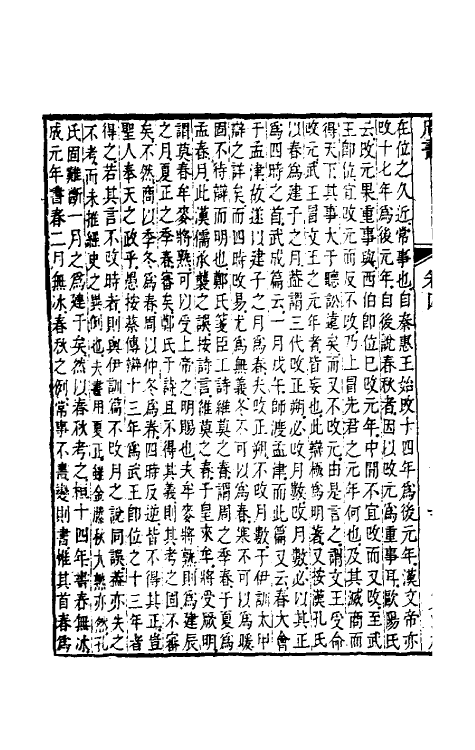 在位之久近常事也自秦惠王始改十四年爲後元年漢文帝亦
改十七年爲後元年自後說春秋者因以改元爲重事耳歐陽氏
云改元果重事與西伯即位已改元年中間不宜改而又改至武
王即位宜改元而反不改乃上冒先君之元年何也及其滅商而
得天下其事大于聽訟遠矣而又不改元由是言之謂文王受命
改元武王冒文王之元年者皆妄也此辯極爲明著又按漢孔氏
以春爲建子之月蓋謂三代改正朔必改月數改月數必以其正
爲四時之首武成篇云一月戊午師渡孟津而此篇又云春大會
于孟津故遂以建子之月爲春夫改正朔不改月數于伊訓太甲
辯之詳矣而四時改易尤爲無義冬不可以爲春寒不可以爲暖
固不待辯而明也鄭氏箋臣工詩維莫之春謂周之季春于夏爲
孟春月此漢儒承襲之誤按詩言維莫之春于皇來牟將受厥明
謂莫春牟麥將熟可以受上帝之明賜也夫牟麥將熟則爲建辰
之月夏正之季春審矣鄭氏于詩且不得其義則其考之固不審
矣不然商以季冬爲春周以仲冬爲春四時反逆皆不得其正豈
聖人奉天之政乎愚按蔡傳辯十三年爲武王即位之十三年者
得之若其言不改時者則與伊訓篇不改月之說同誤蔡亦失之
不考而未推經史之異例也夫書用夏正雖金縢秋大熟亦然孔
氏固難斷一月之爲建子矣然以春秋考之桓十四年書春無冰
成元年書春二月無冰春秋之例常事不書變則書惟其首春爲